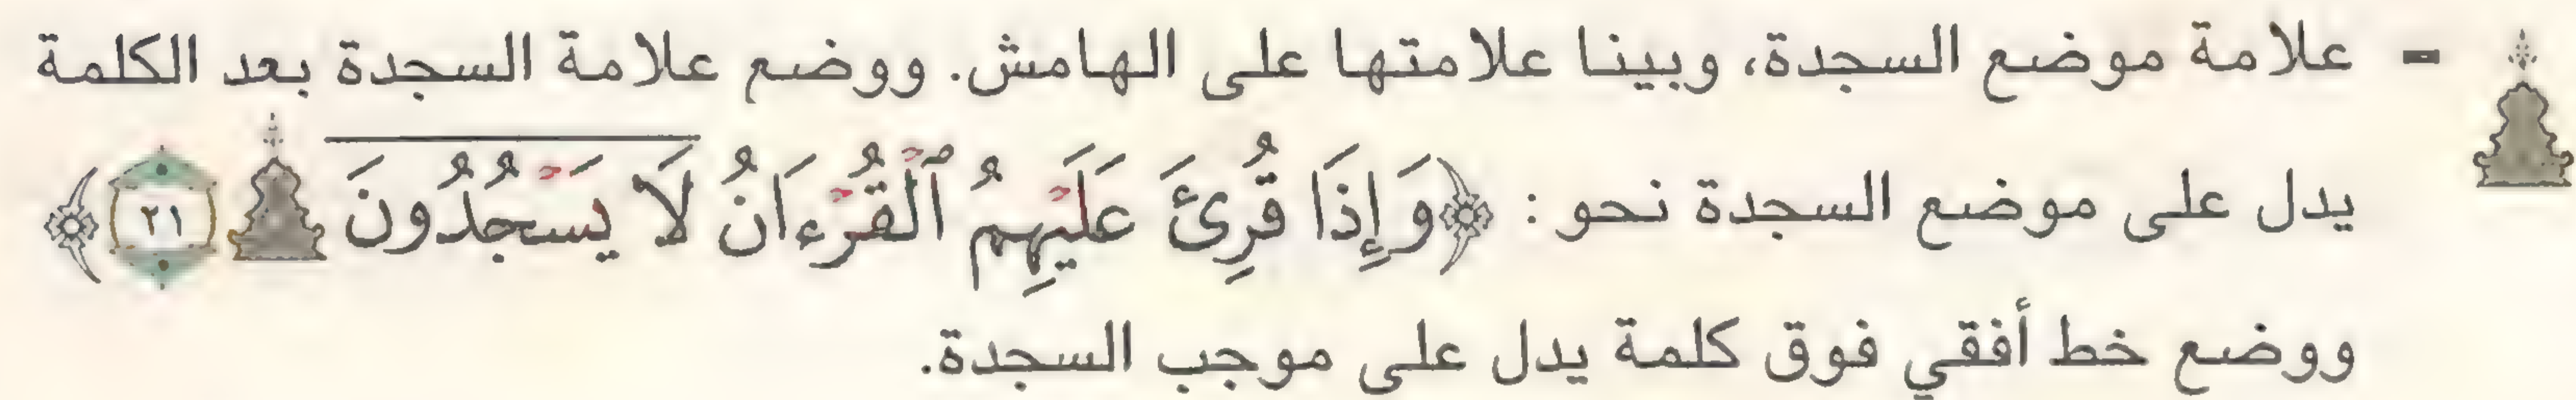 - علامة موضع السجدة، وبينا علامتها على الهامش. ووضع علامة السجدة بعد الكلمة
يدل على موضع السجدة نحو : ﴿وَإِذَا قُرِئَ عَلَيْهِمُ ٱلْقُرْءَانُ لَا يَسْجُدُونَ ۩ ٢١﴾
ووضع خط أفقي فوق كلمة يدل على موجب السجدة.